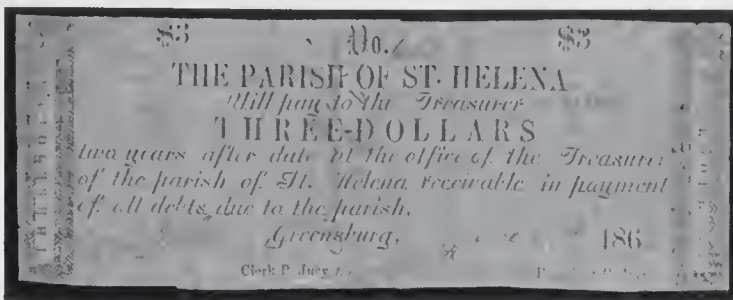 $3 No. $3
THE PARISH OF ST. HELENA
Will pay to the Treasurer
THREE-DOLLARS
two years after date at the office of the Treasurer
of the parish of St. Helena receivable in payment
of all debts due to the parish.
Greensburg, 186
Clerk P. Jury